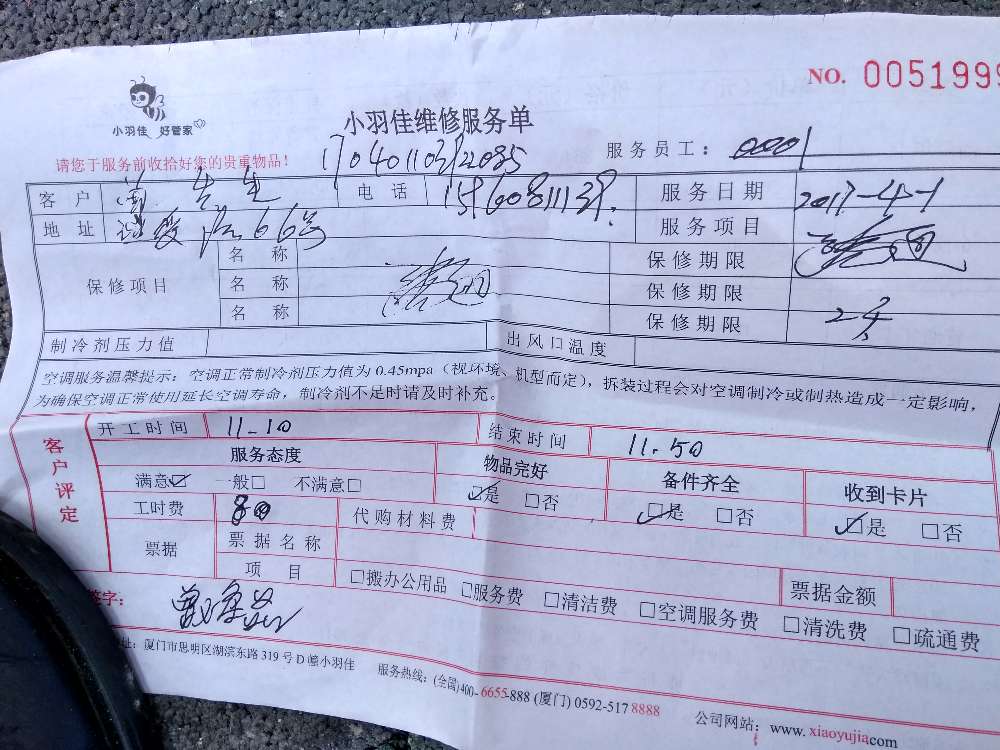 NO. 0051999
小羽佳 好管家
小羽佳维修服务单
请您于服务前收拾好您的贵重物品！
服务员工： 0001
客户 先生 电话 服务日期 2017-4-1
地址 66号 服务项目
保修项目 名称 保修期限
名称 保修期限
名称 保修期限
制冷剂压力值 出风口温度
空调服务温馨提示：空调正常制冷剂压力值为 0.45mpa（视环境、机型而定），拆装过程会对空调制冷或制热造成一定影响，
为确保空调正常使用延长空调寿命，制冷剂不足时请及时补充。
客户评定
开工时间 11-10 结束时间 11.50
服务态度 物品完好 备件齐全 收到卡片
满意☑ 一般□ 不满意□ ☑是 □否 ☑是 □否 ☑是 □否
工时费 80 代购材料费
票据 票据名称 票据金额
项目 □搬办公用品 □服务费 □清洁费 □空调服务费 □清洗费 □疏通费
签字：
址：厦门市思明区湖滨东路 319 号 D 幢小羽佳 服务热线：(全国)400-6655-888 (厦门) 0592-517 8888
公司网站：www.xiaoyujia.com